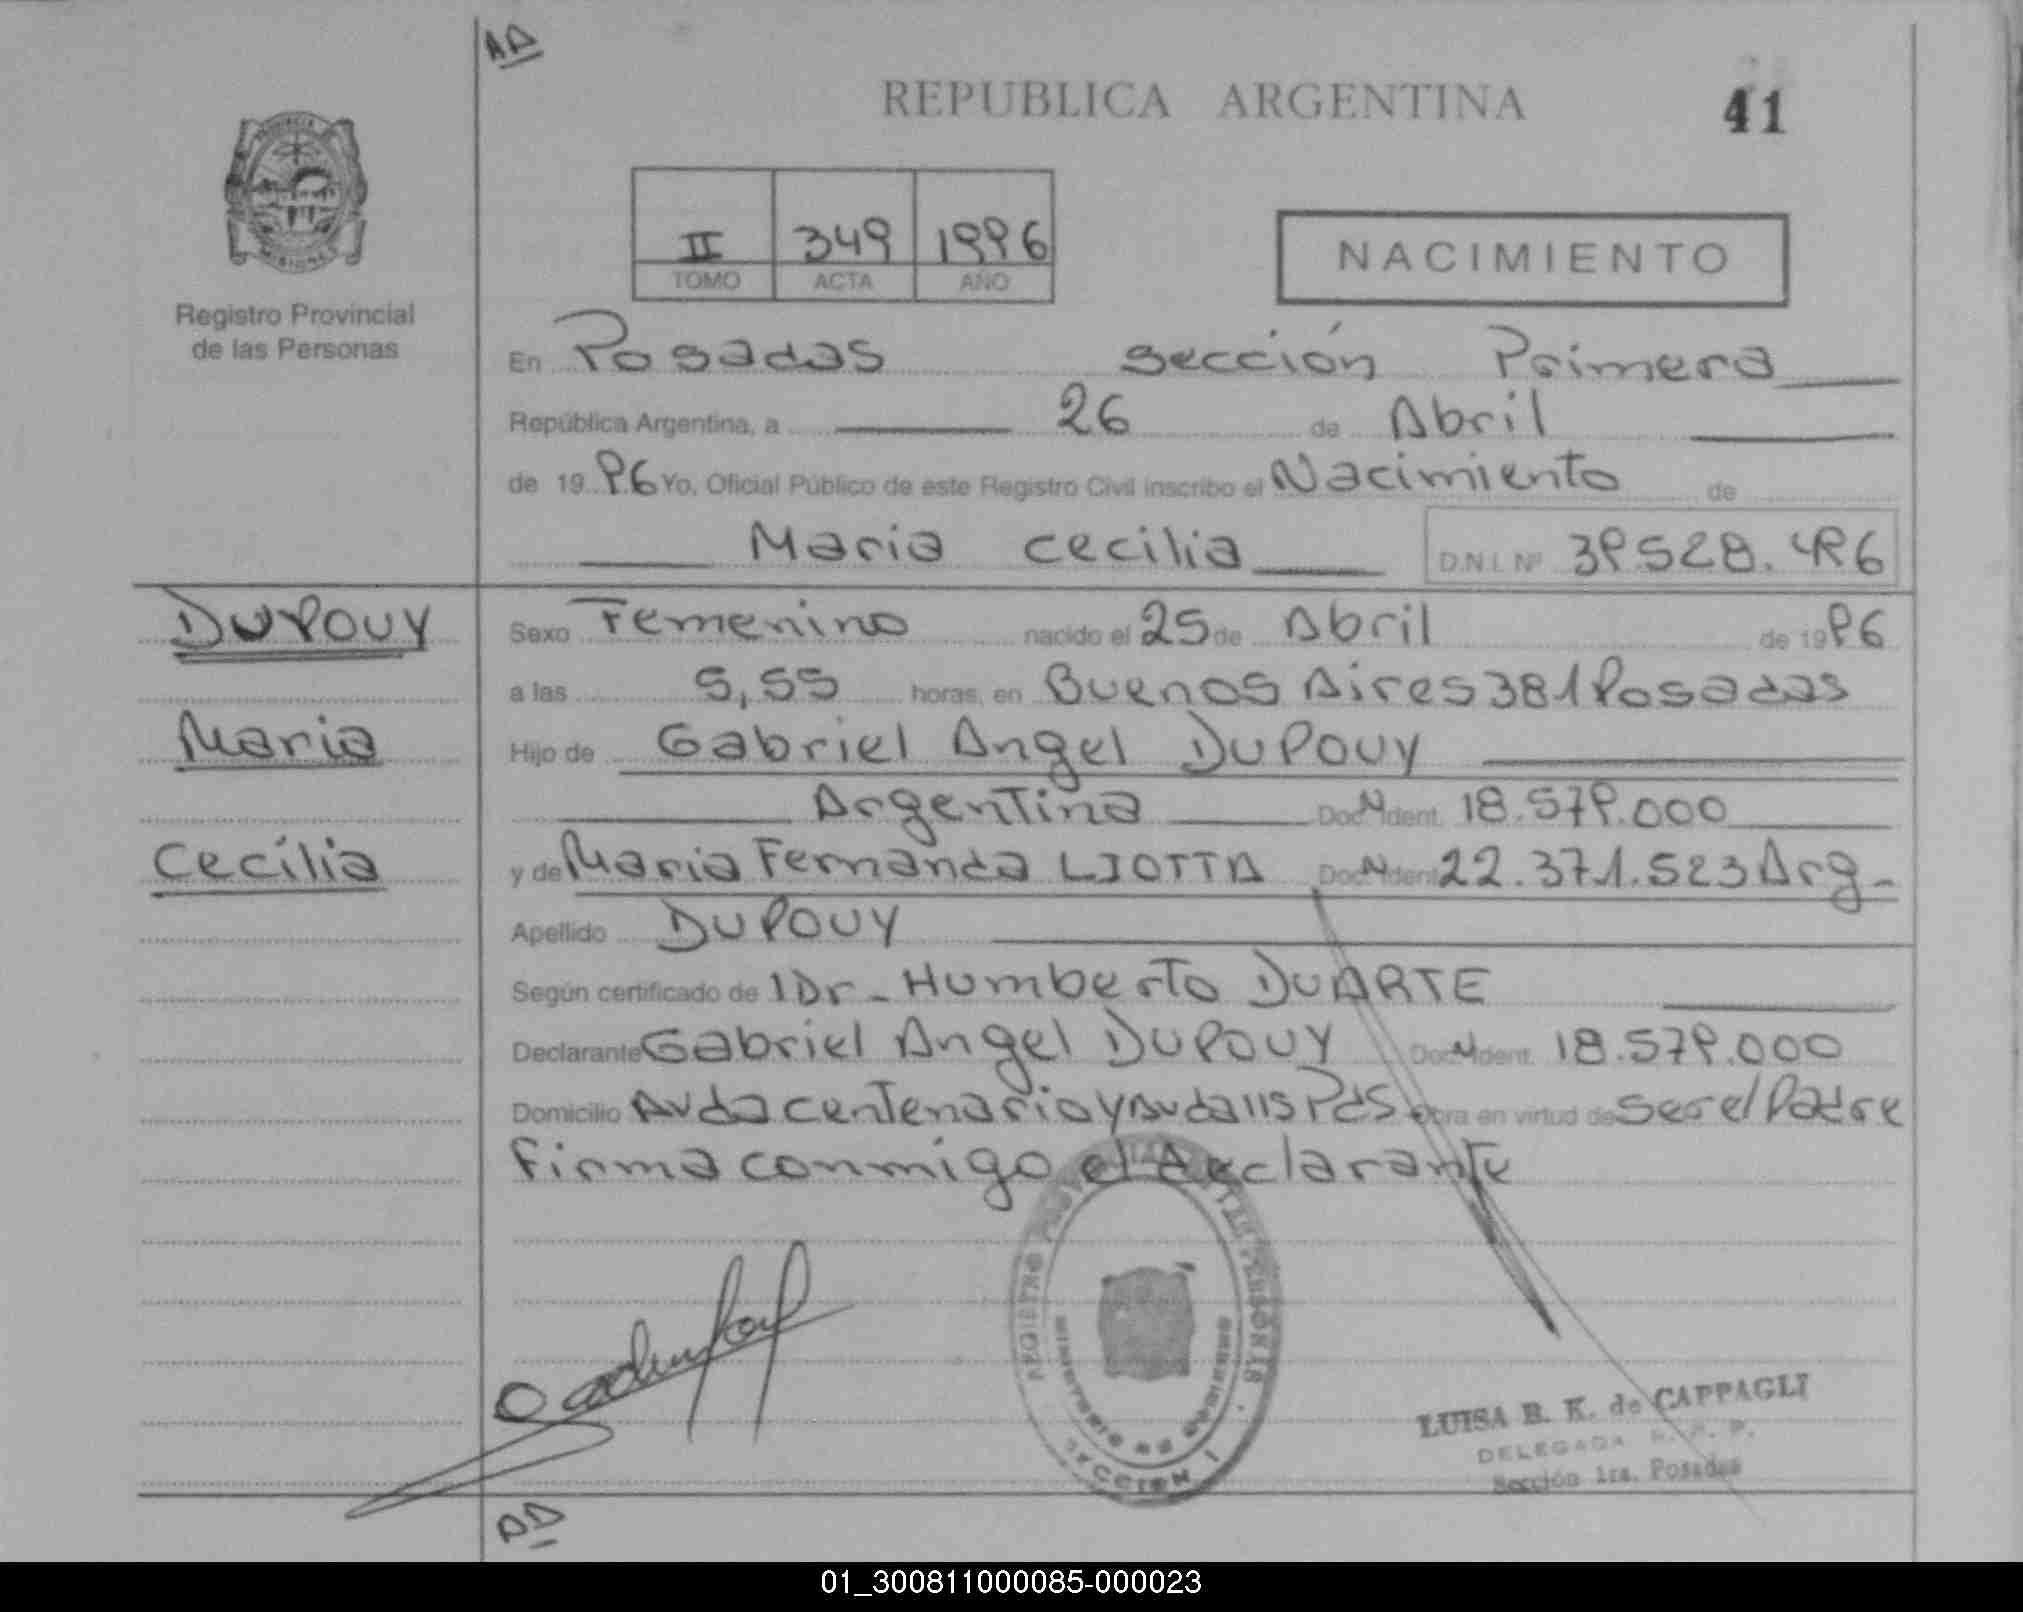 AD
REPUBLICA ARGENTINA
41
PROVINCIA
MISIONES
Registro Provincial
de las Personas
II 349 1996
TOMO ACTA AÑO
NACIMIENTO
En Posadas sección Primera
República Argentina, a 26 de Abril
de 1996 Yo, Oficial Público de este Registro Civil inscribo el Nacimiento de
Maria Cecilia D.N.I. Nº 39.528.496
DUPOUY
Maria
Cecilia
Sexo Femenino nacido el 25 de Abril de 1996
a las 5,55 horas, en Buenos Aires 381 Posadas
Hijo de Gabriel Angel DUPOUY
Argentina Doc N Ident. 18.579.000
y de Maria Fernanda LIOTTA Doc N Ident 22.371.523 Arg-
Apellido DUPOUY
Según certificado de l Dr- Humberto DUARTE
Declarante Gabriel Angel DUPOUY Doc N Ident. 18.579.000
Domicilio Avda Centenario y Avda 115 Pdas Obra en virtud de ser el Padre
Firma conmigo el declarante
REGISTRO PROV DE LAS PERSONAS
MINISTERIO DE GOBIERNO
SECCION 1
LUISA B. K. de CAPPAGLI
DELEGADA R. P. P.
Sección 1ra. Posadas
AD
01_300811000085-000023